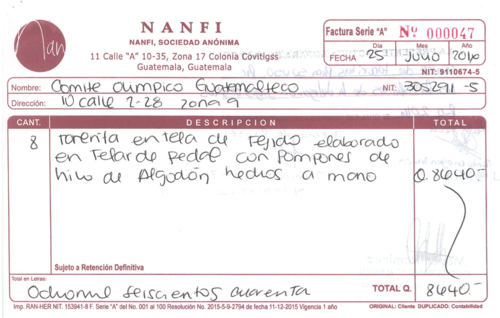 Nan
NANFI
NANFI, SOCIEDAD ANÓNIMA
11 Calle "A" 10-35, Zona 17 Colonia Covitigss
Guatemala, Guatemala
Factura Serie "A" Nº 000047
Día Mes Año
FECHA 25 Julio 2016
NIT: 9110674-5
Nombre: Comite olimpico Guatemalteco NIT: 305291-5
Dirección: 10 calle 2-28 zona 9
CANT. DESCRIPCION TOTAL
8 en tela de Tejido elaborado
en Telar de Pedal con Pompones de
hilo de Algodón hechos a mano Q.8640.-
Sujeto a Retención Definitiva
Total en Letras:
Ochomil seiscientos cuarenta TOTAL Q. 8640.-
Imp. RAN-HER NIT. 153941-8 F. Serie "A" del No. 001 al 100 Resolución No. 2015-5-9-2794 de fecha 11-12-2015 Vigencia 1 año ORIGINAL: Cliente DUPLICADO: Contabilidad